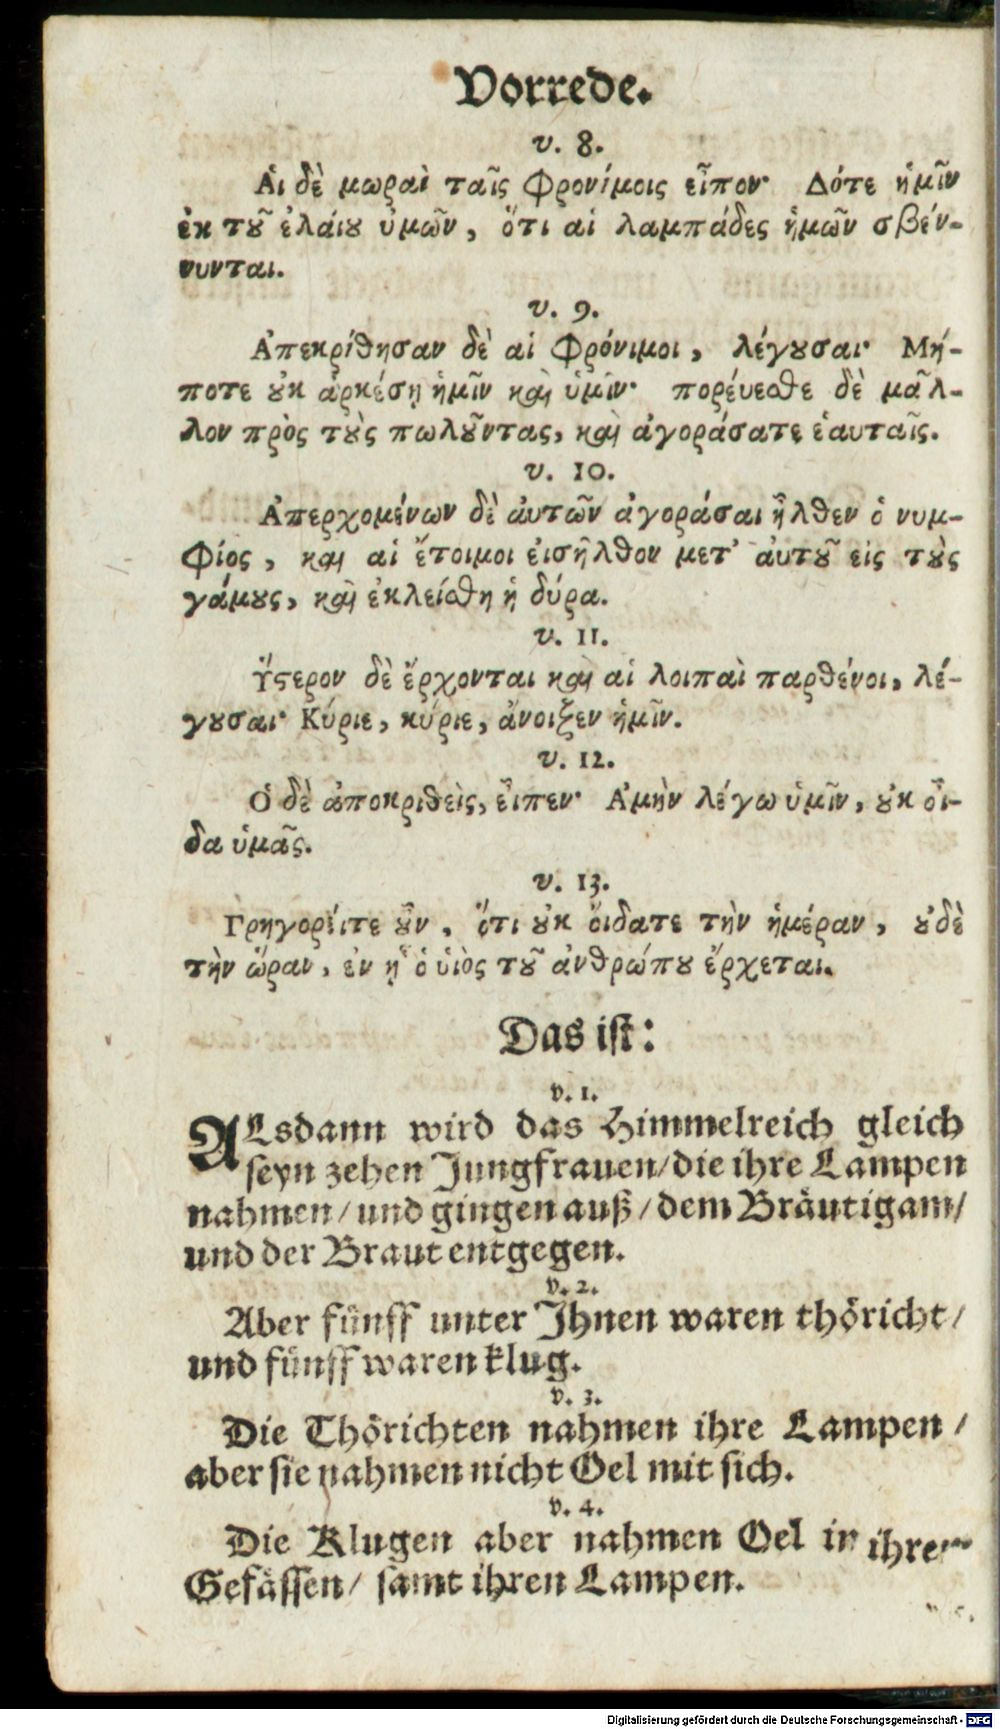 Vorrede.
v. 8.
Αἱ δὲ μωραὶ ταῖς φρονίμοις εἶπον· Δότε ἡμῖν
ἐκ τȣ͂ ἐλάιȣ ὑμῶν, ὅτι αἱ λαμπάδες ἡμῶν σβέν-
νυνται.
v. 9.
Ἀπεκρίθησαν δὲ αἱ φρόνιμοι, λέγȣσαι· Μή-
ποτε ȣκ ἀρκέσῃ ἡμῖν καὶ ὑμῖν· πορέυεσθε δὲ μᾶλ-
λον πρὸς τȣ̀ς πωλȣ͂ντας, καὶ ἀγοράσατε ἑαυταῖς.
v. 10.
Ἀπερχομένων δὲ ἀυτῶν ἀγοράσαι ἦλθεν ὁ νυμ-
φίος, και αἱ ἕτοιμοι ἐισῆλθον μετ' ἀυτȣ͂ εἰς τȣ̀ς
γάμȣς, καὶ ἐκλείσθη ἡ δύρα.
v. 11.
Ὕςερον δὲ ἔρχονται καὶ αἱ λοιπαὶ παρθένοι, λέ-
γȣσαι· Κύριε, κύριε, ἄνοιξεν ἡμῖν.
v. 12.
Ὁ δὲ ἀποκριθεὶς, εἶπεν· Ἀμὴν λέγω ὑμῖν, ȣκ οἶ-
δα ὑμᾶς.
v. 13.
Γρηγορεῖτε ȣ͂ν, ὅτι ȣκ ὄιδατε τὴν ἡμέραν, ȣ̓δὲ
τὴν ὥραν, ἐν ᾗ ὁ ὑιὸς τȣ͂ ἀνθρώπȣ ἔρχεται.
Das iſt:
v. 1.
ALsdann wird das Himmelreich gleich
ſeyn zehen Jungfrauen/die ihre Lampen
nahmen/und gingen auß/dem Bräutigam/
und der Braut entgegen.
v. 2.
Aber fünff unter Jhnen waren thöricht/
und fünff waren klug.
v. 3.
Die Thörichten nahmen ihre Lampen/
aber ſie nahmen nicht Oel mit ſich.
v. 4.
Die Klugen aber nahmen Oel in ihren
Gefäſſen/ ſamt ihren Lampen.
Digitalisierung gefördert durch die Deutsche Forschungsgemeinschaft - DFG